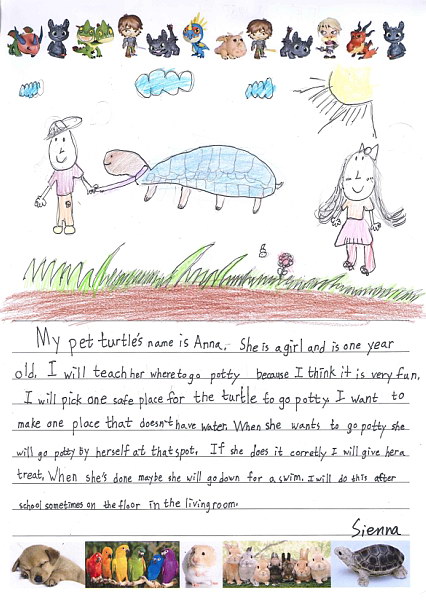 My pet turtle's name is Anna. She is a girl and is one year
old. I will teach her where to go potty because I think it is very fun.
I will pick one safe place for the turtle to go potty. I want to
make one place that doesn't have water. When she wants to go potty she
will go potty by herself at that spot. If she does it corretly I will give her a
treat. When she's done maybe she will go down for a swim. I will do this after
school sometimes on the floor in the living room.
Sienna